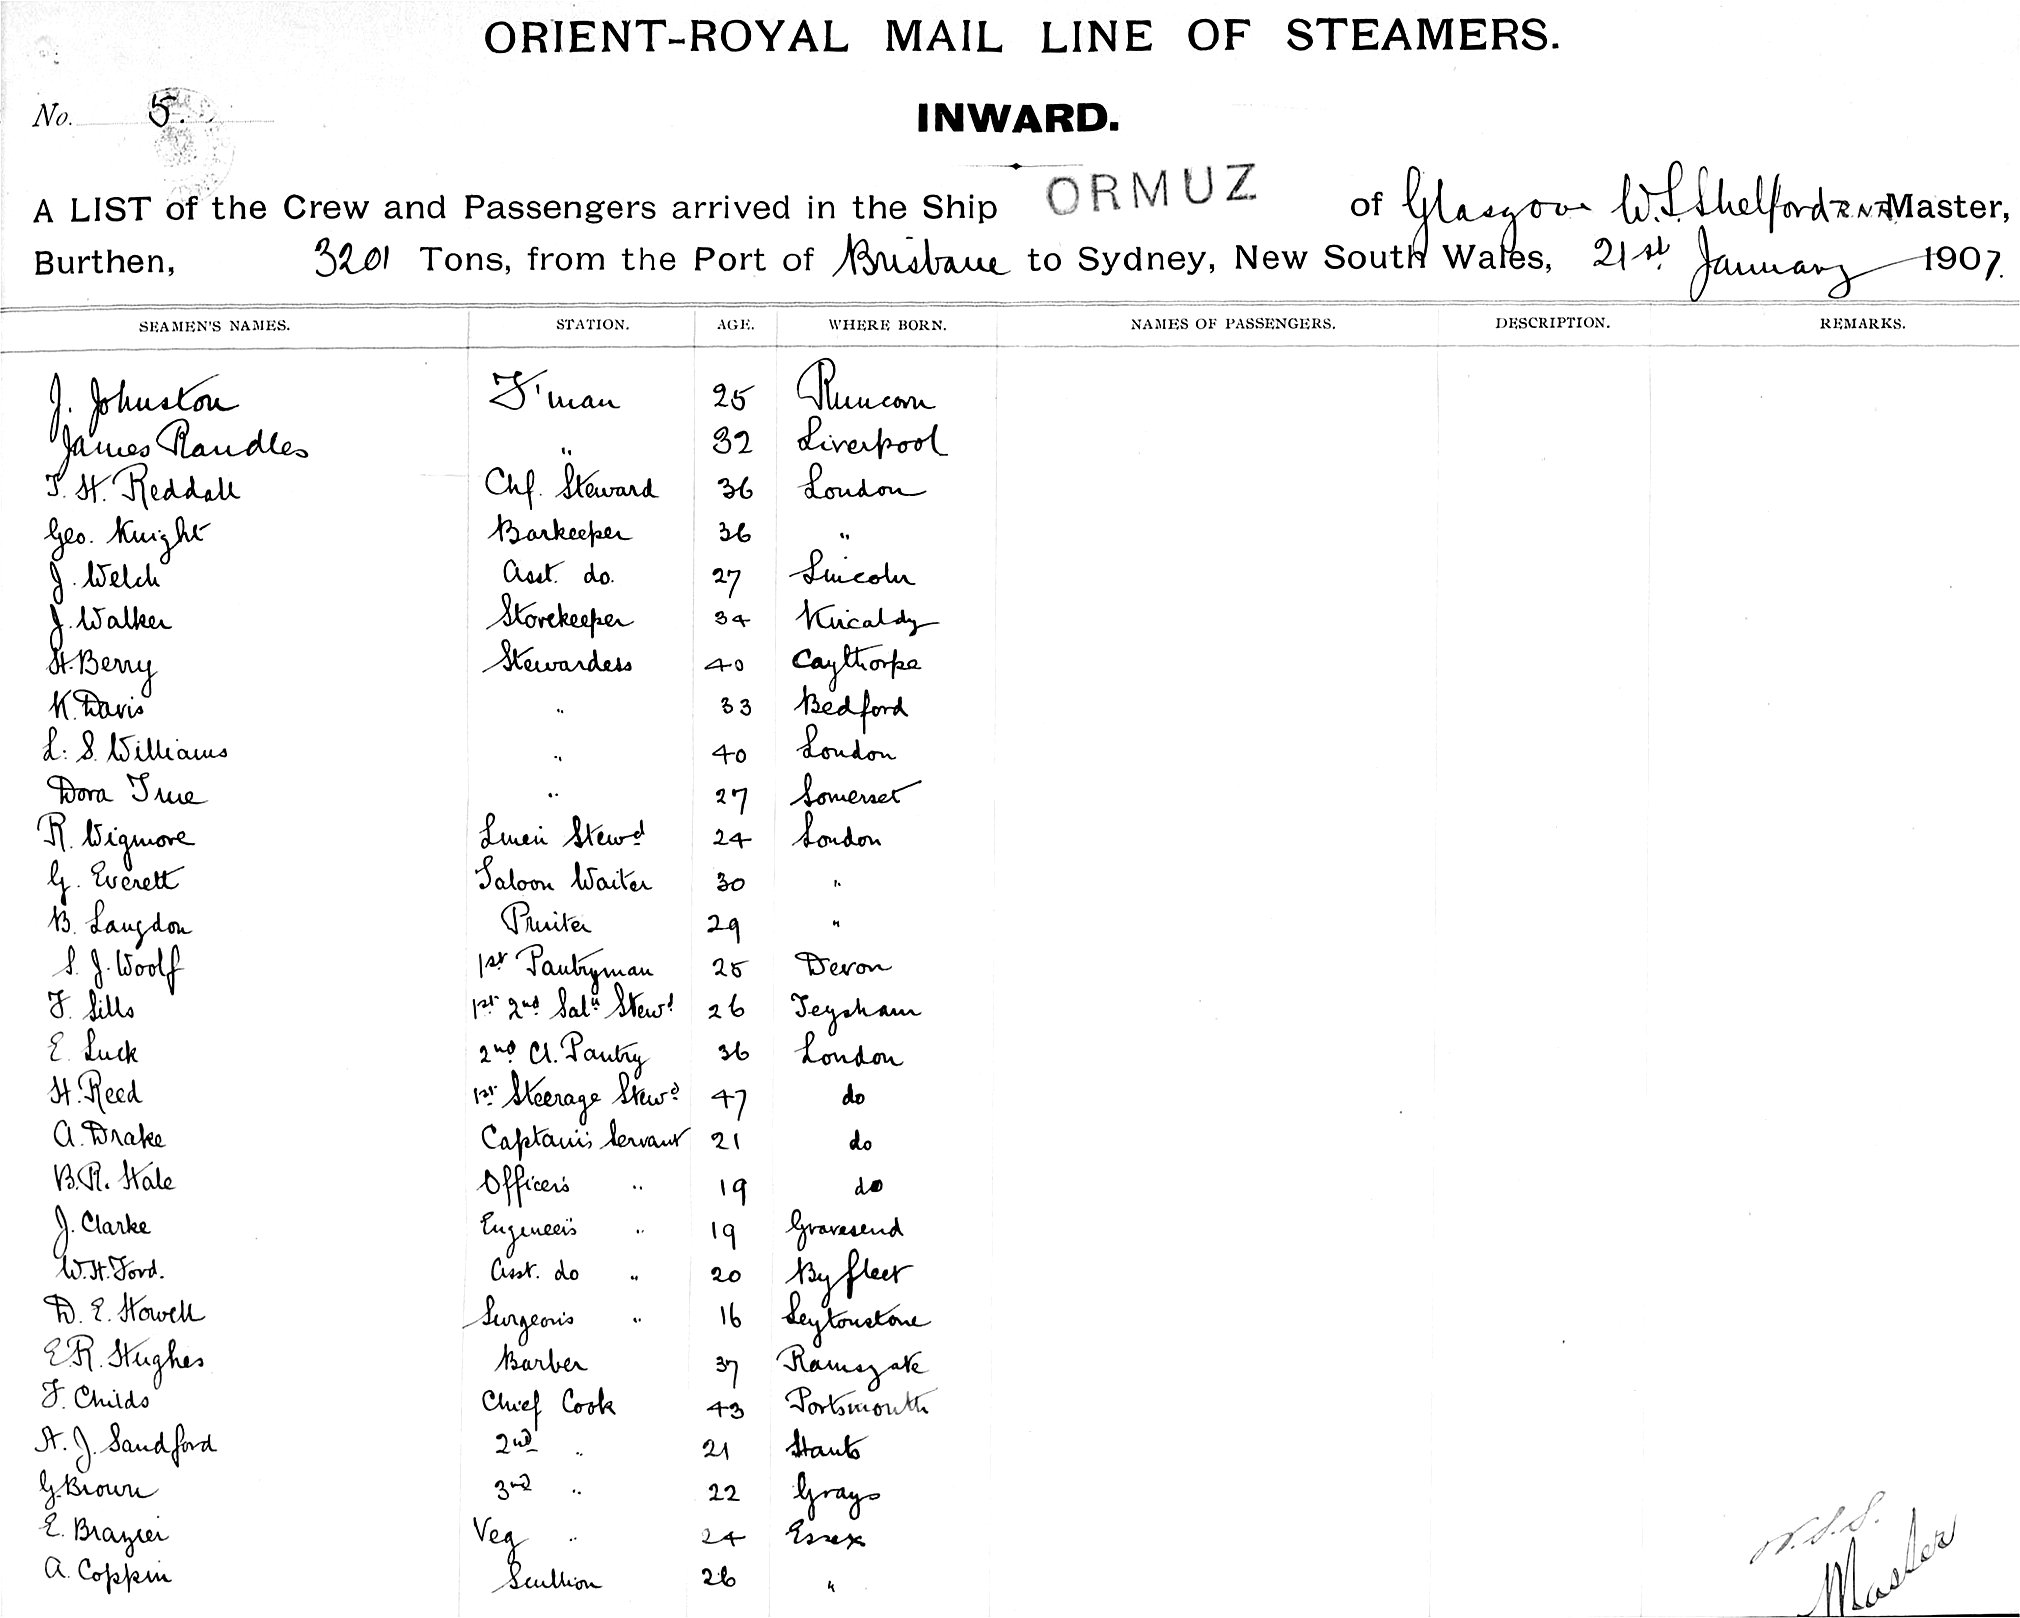 ORIENT-ROYAL MAIL LINE OF STEAMERS.
No. 5.
INWARD.
A LIST of the Crew and Passengers arrived in the Ship ORMUZ of Glasgow W.S. Shelford R.N.R. Master,
Burthen, 3201 Tons, from the Port of Brisbane to Sydney, New South Wales, 21st January 1907.
SEAMEN'S NAMES. STATION. AGE. WHERE BORN. NAMES OF PASSENGERS. DESCRIPTION. REMARKS.
J. Johnston F'man 25 Runcorn
James Randles " 32 Liverpool
T. H. Reddall Chf. Steward 36 London
Geo. Knight Barkeeper 36 "
J. Welch Asst. do. 27 Lincoln
J. Walker Storekeeper 34 Kircaldy
H. Berry Stewardess 40 Caythorpe
K. Davis " 33 Bedford
L. S. Williams " 40 London
Dora True " 27 Somerset
R. Wigmore Linen Stewd 24 London
G. Everett Saloon Waiter 30 "
B. Langdon Printer 29 "
S. J. Woolf 1st Pantryman 25 Devon
F. Sills 1st 2nd Saln Stewd 26 Teysham
E. Luck 2nd Cl. Pantry 36 London
H. Reed 1st Steerage Stewd 47 do
A. Drake Captain's Servant 21 do
B. R. Hale Officer's " 19 do
J. Clarke Engineer's " 19 Gravesend
W. H. Ford. Asst. do " 20 Byfleet
D. E. Howell Surgeon's " 16 Leytonstone
E. R. Hughes Barber 37 Ramsgate
F. Childs Chief Cook 43 Portsmouth
A. J. Sandford 2nd " 21 Hants
G. Brown 3rd " 22 Grays
E. Brazier Veg " 24 Essex
A. Coppin Scullion 26 "
W.S.S.
Master